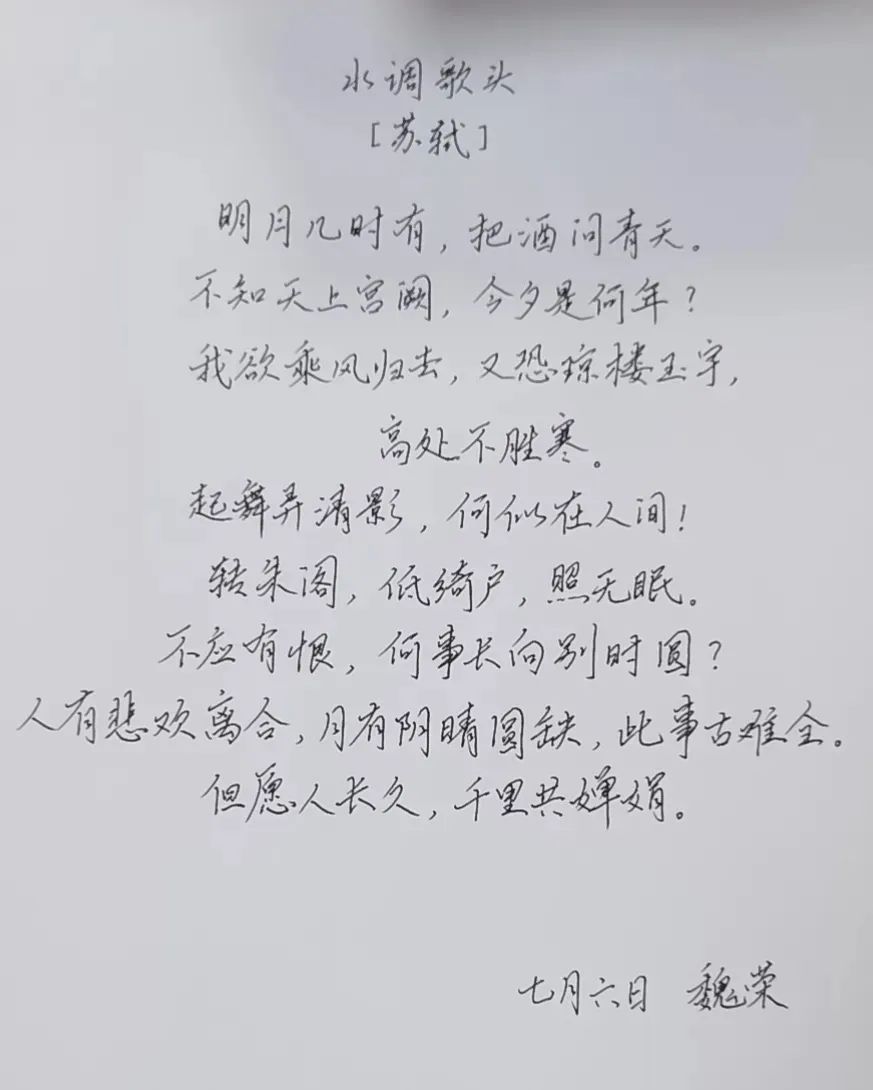 水调歌头
[苏轼]
明月几时有，把酒问青天。
不知天上宫阙，今夕是何年？
我欲乘风归去，又恐琼楼玉宇，
高处不胜寒。
起舞弄清影，何似在人间！
转朱阁，低绮户，照无眠。
不应有恨，何事长向别时圆？
人有悲欢离合，月有阴晴圆缺，此事古难全。
但愿人长久，千里共婵娟。
七月六日 魏荣